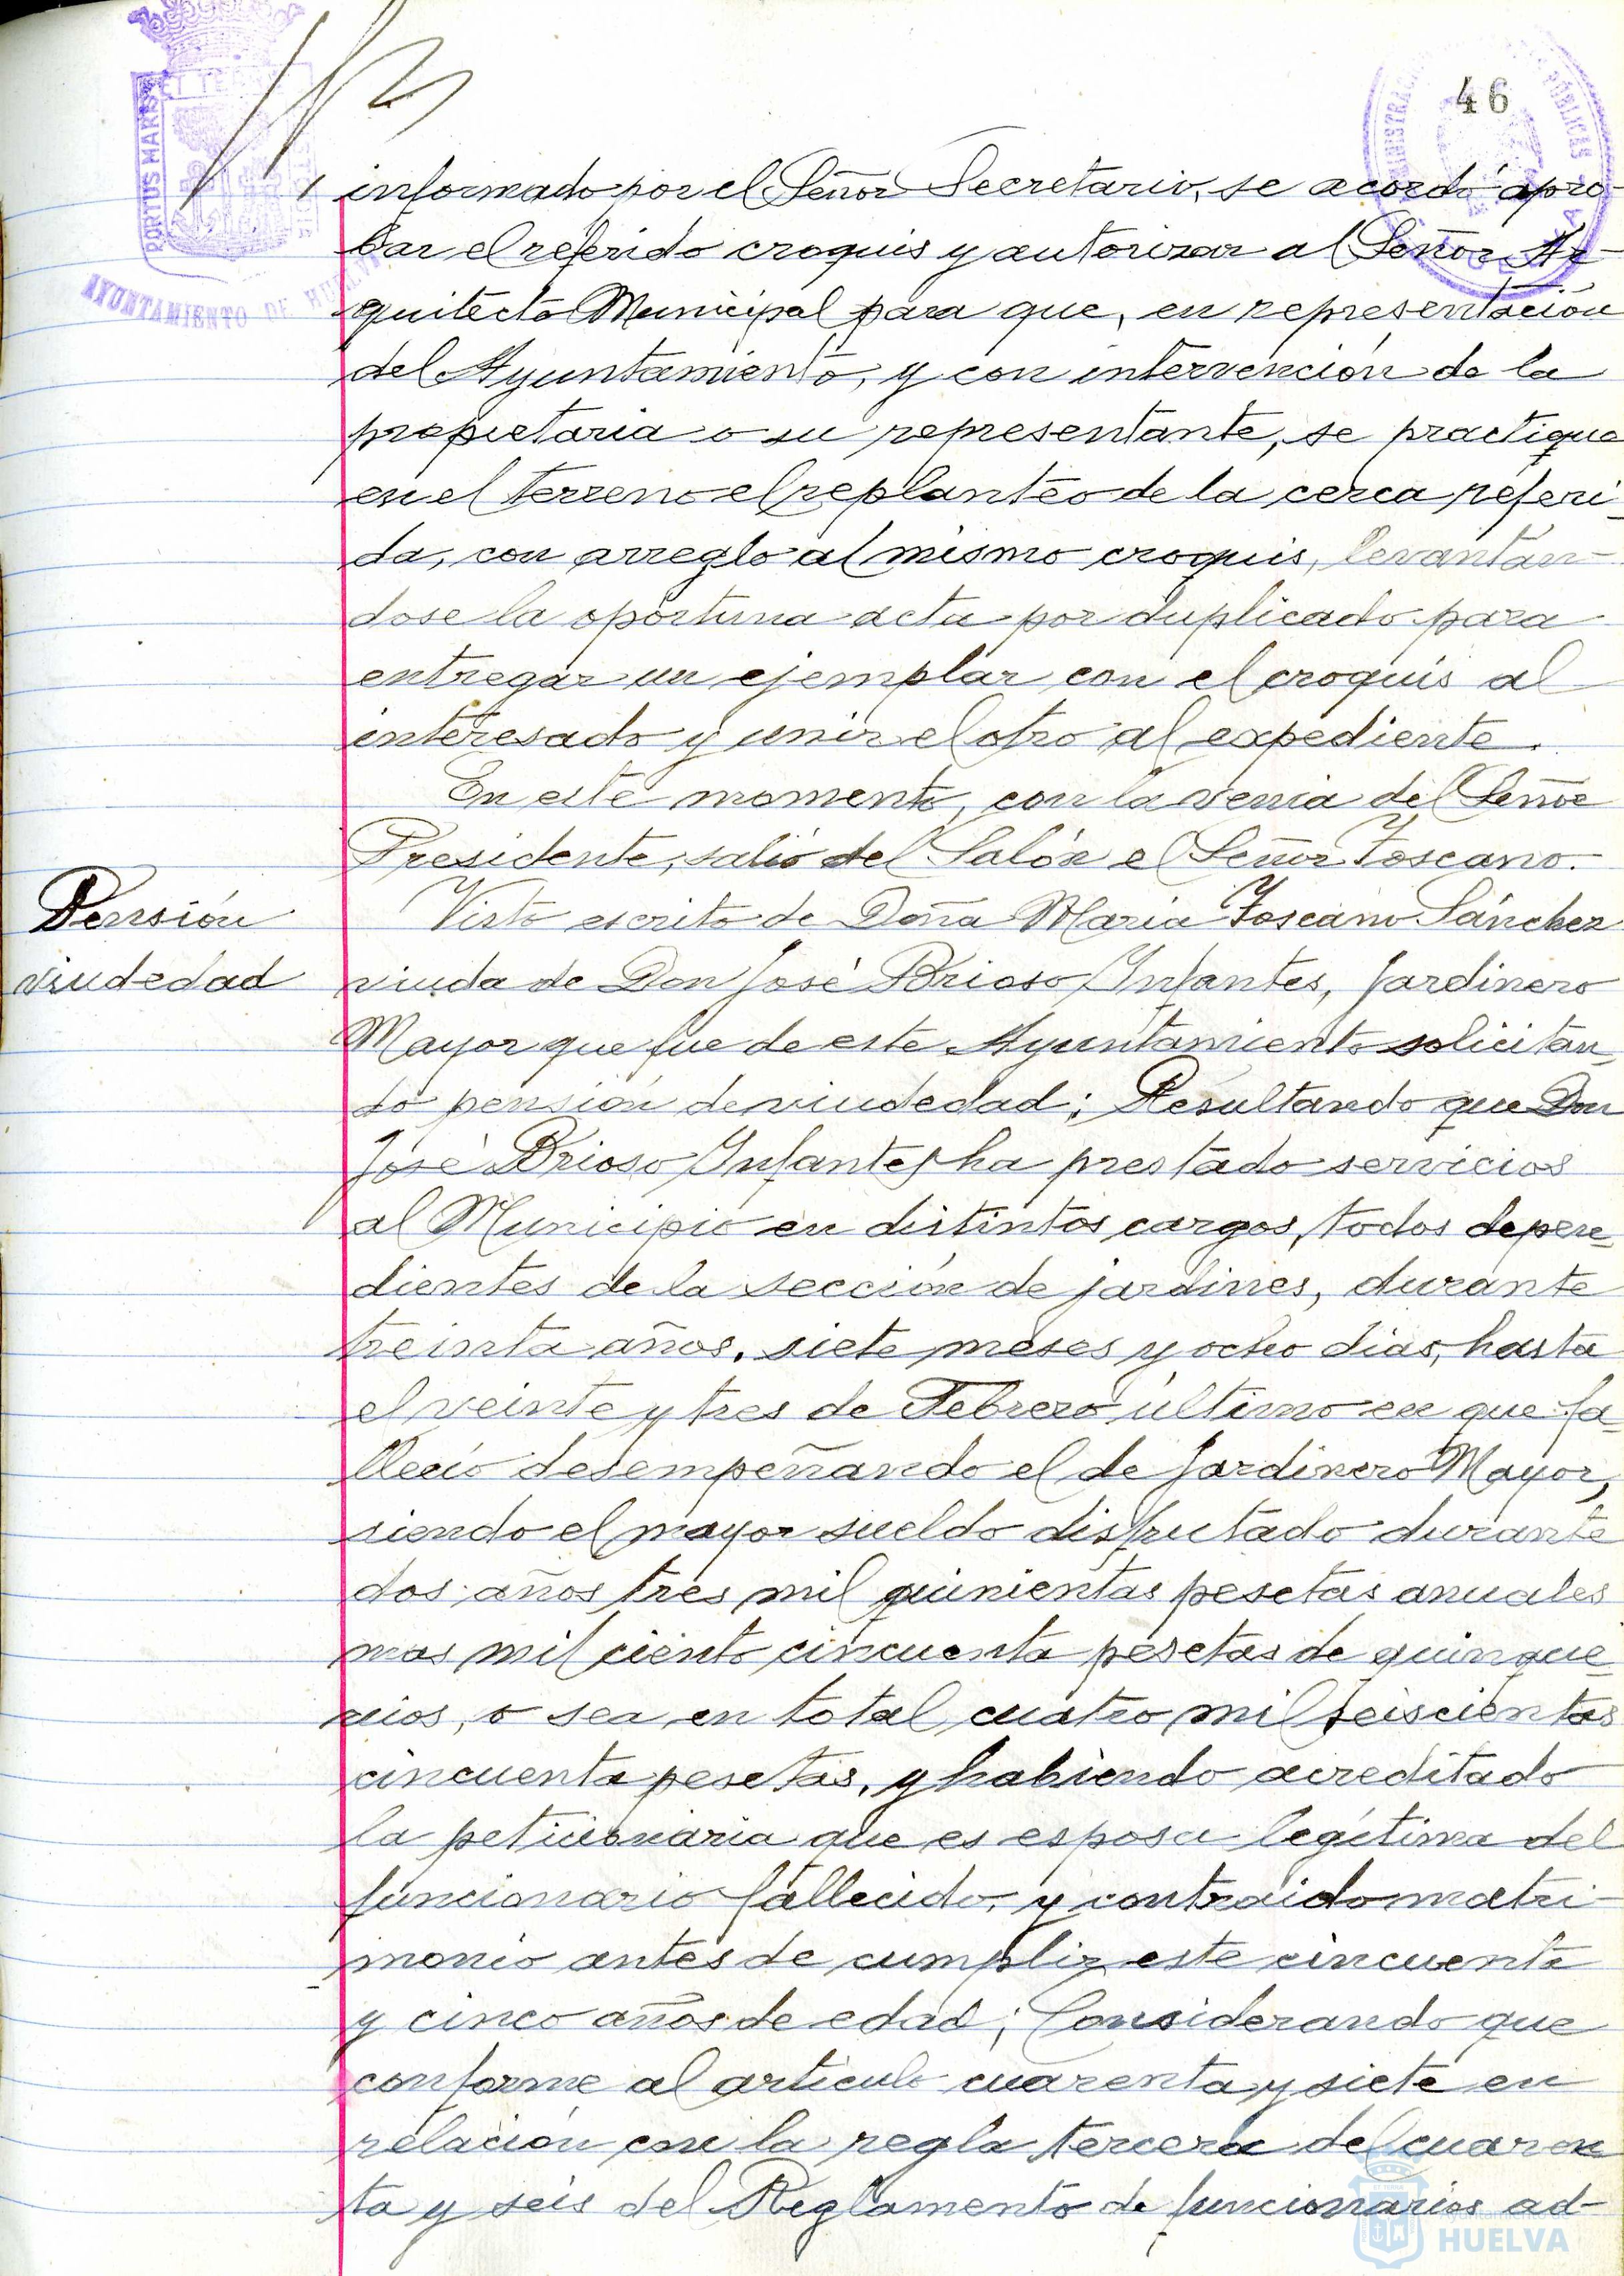 46
PORTUS MARIS
AYUNTAMIENTO DE HUELVA
informado por el Señor Secretario, se acordó apro-
bar el referido croquis y autorizar al Señor Ar-
quitecto Municipal para que, en representación
del Ayuntamiento, y con intervención de la
propietaria o su representante, se practique
en el terreno el replanteo de la cerca referi-
da, con arreglo al mismo croquis, levantán-
dose la oportuna acta por duplicado para
entregar un ejemplar con el croquis al
interesado y unir el otro al expediente.
En este momento, con la venia del Señor
Presidente, salió del Salón el Señor Toscano.
Pensión
viudedad
Visto escrito de Doña María Toscano Sánchez
viuda de Don José Brioso Infantes, Jardinero
Mayor que fue de este Ayuntamiento solicitan-
do pensión de viudedad; Resultando que Don
José Brioso Infantes ha prestado servicios
al Municipio en distintos cargos, todos depen-
dientes de la sección de jardines, durante
treinta años, siete meses y ocho dias, hasta
el veinte y tres de Febrero último en que fa-
lleció desempeñando el de Jardinero Mayor,
siendo el mayor sueldo disfrutado durante
dos años tres mil quinientas pesetas anuales
mas mil ciento cincuenta pesetas de quinque-
nios, o sea en total cuatro mil seiscientas
cincuenta pesetas, y habiendo acreditado
la peticionaria que es esposa legítima del
funcionario fallecido, y contraido matri-
monio antes de cumplir este cincuenta
y cinco años de edad; Considerando que
conforme al artículo cuarenta y siete en
relación con la regla tercera del cuaren
ta y seis del Reglamento de funcionarios ad-
HUELVA